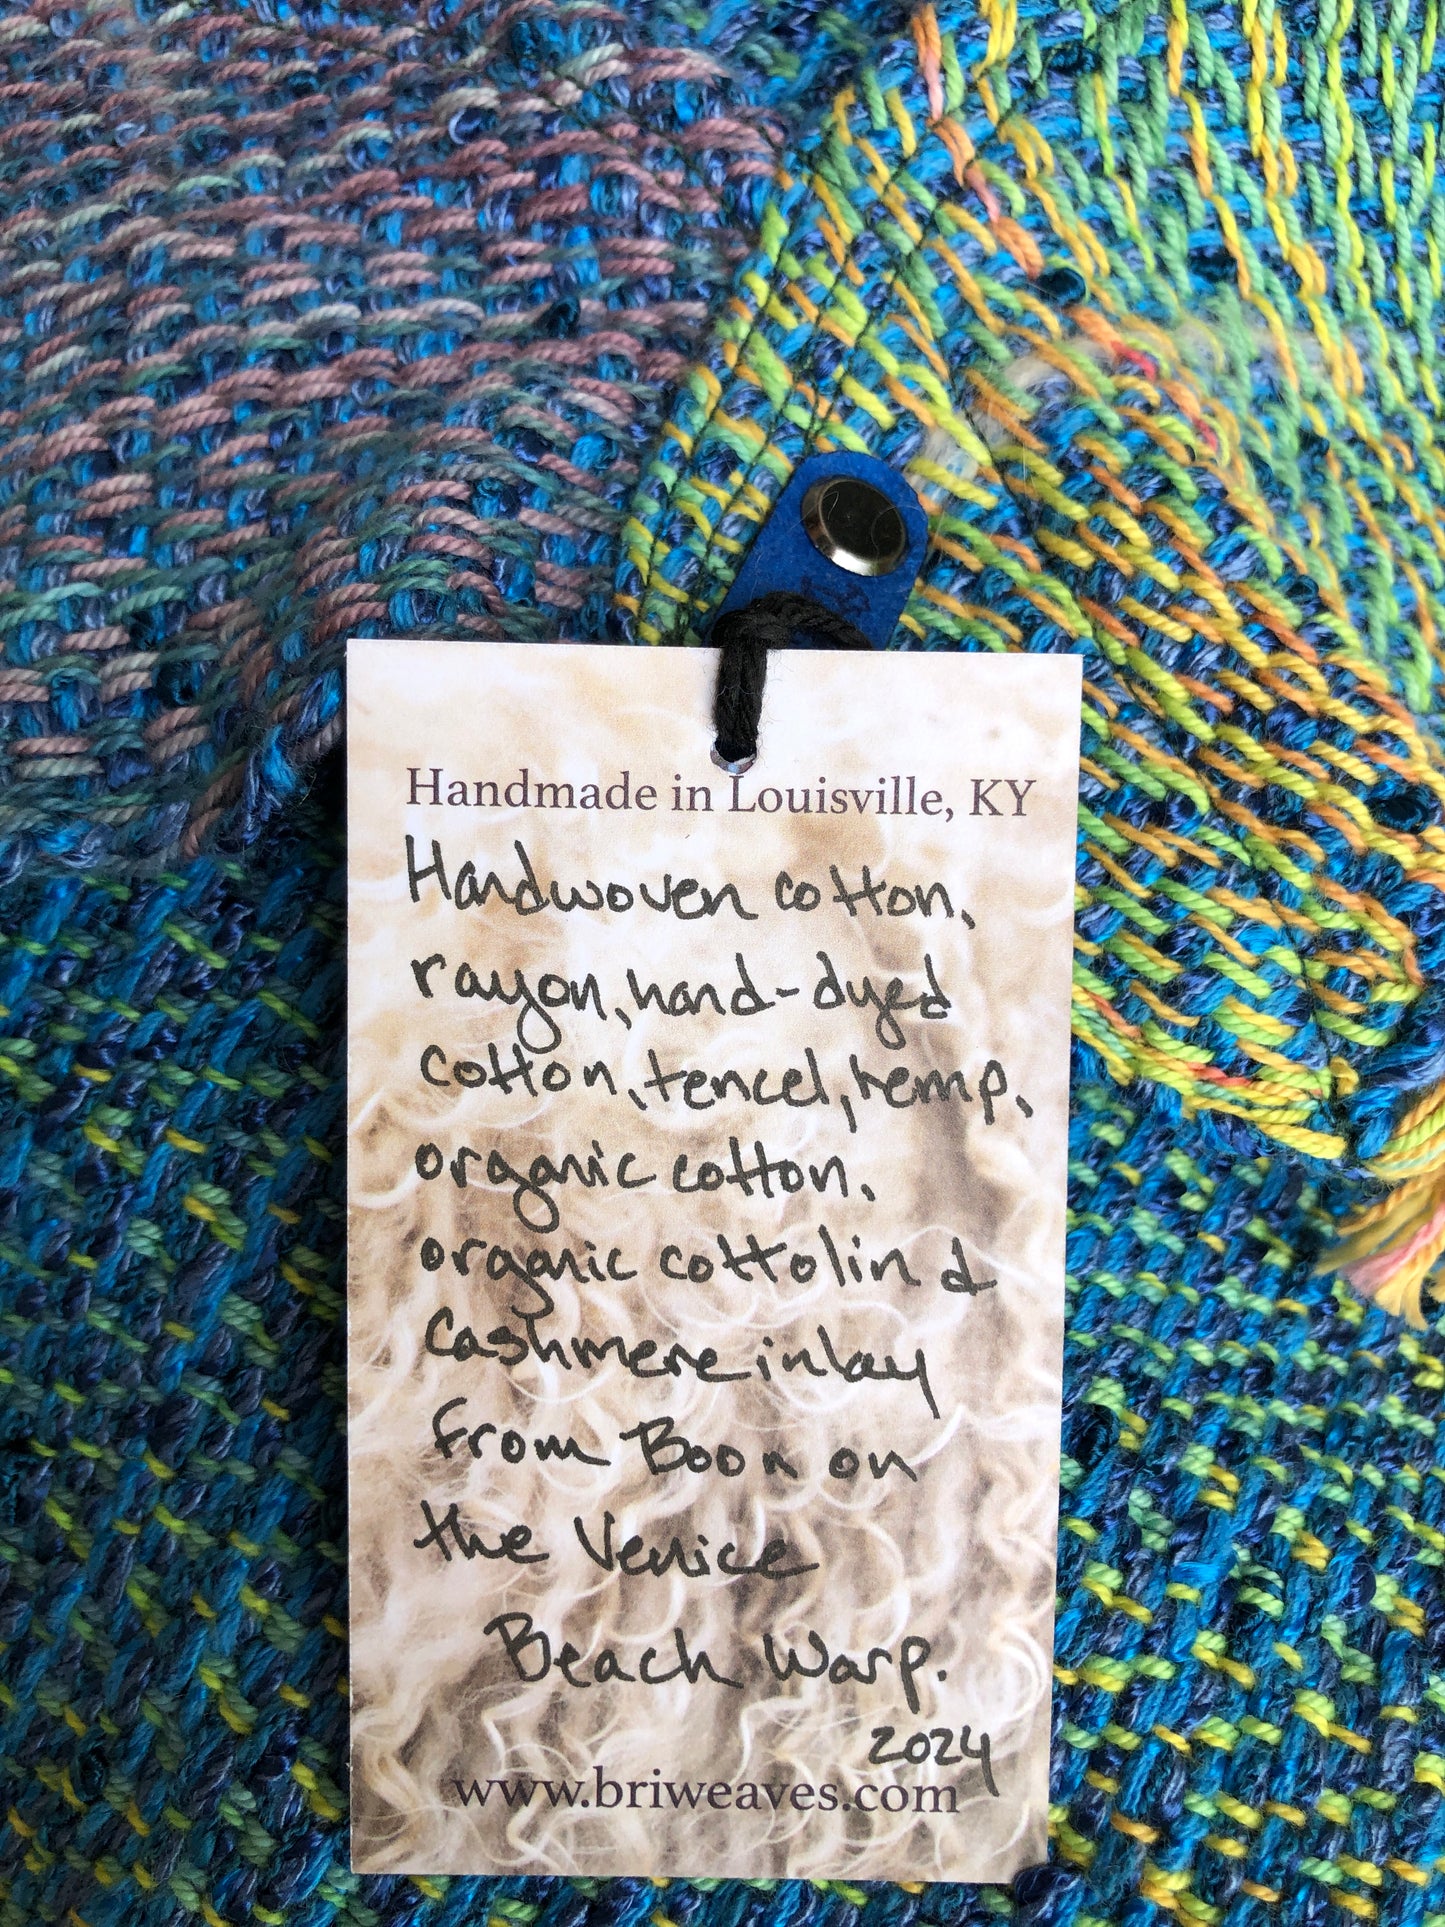 Handmade in Louisville, KY
Handwoven cotton,
rayon, hand-dyed
cotton, tencel, hemp,
organic cotton,
organic cottolin &
cashmere inlay
from Boon on
the Venice
Beach Warp.
2024
www.briweaves.com